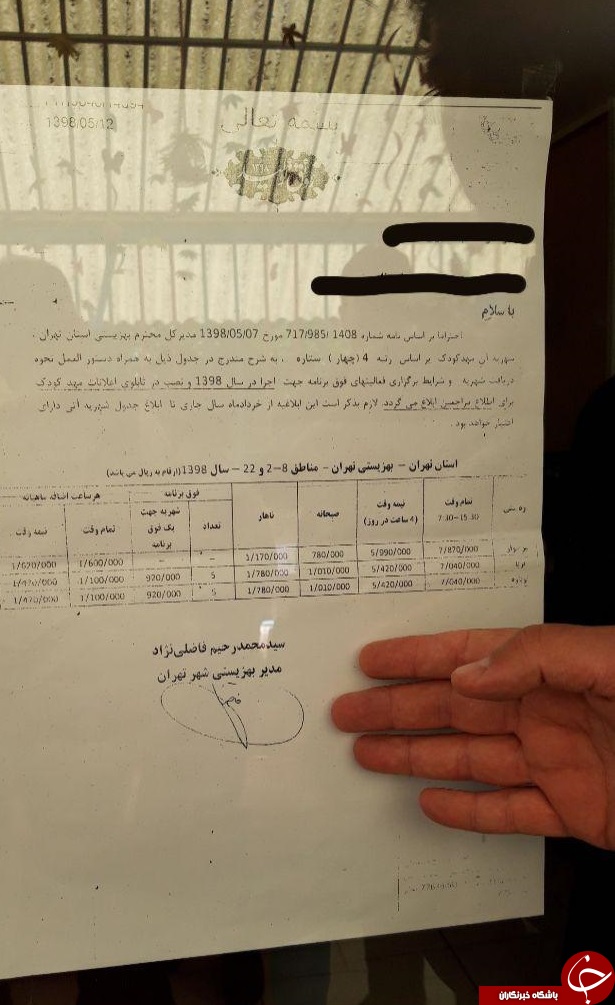 بسمه تعالی
1398/05/12
با سلام
احتراما بر اساس نامه شماره 1408 /717/985 مورخ 1398/05/07 مدیر کل محترم بهزیستی استان تهران ،
شهریه آن مهدکودک بر اساس رتبه 4 (چهار) ستاره ، به شرح مندرج در جدول ذیل به همراه دستور العمل نحوه
دریافت شهریه و شرایط برگزاری فعالیتهای فوق برنامه جهت اجرا در سال 1398 و نصب در تابلوی اعلانات مهد کودک
برای اطلاع مراجعین ابلاغ می گردد. لازم بذکر است این ابلاغیه از خردادماه سال جاری تا ابلاغ جدول شهریه آتی دارای
اعتبار خواهد بود .
استان تهران – بهزیستی تهران – مناطق 8-2 و 22 – سال 1398 (ارقام به ریال می باشد)
رده سنی تمام وقت 7:30-15:30 نیمه وقت (4 ساعت در روز) صبحانه ناهار فوق برنامه تعداد شهریه جهت یک فوق برنامه هر ساعت اضافه ماهیانه تمام وقت نیمه وقت
7/870/000 5/990/000 780/000 1/170/000 – – 1/600/000 1/620/000
7/040/000 5/420/000 1/010/000 1/780/000 5 920/000 1/100/000 1/470/000
7/040/000 5/420/000 1/010/000 1/780/000 5 920/000 1/100/000 1/470/000
سیدمحمدرحیم فاضلی‌نژاد
مدیر بهزیستی شهر تهران
باشگاه خبرنگاران